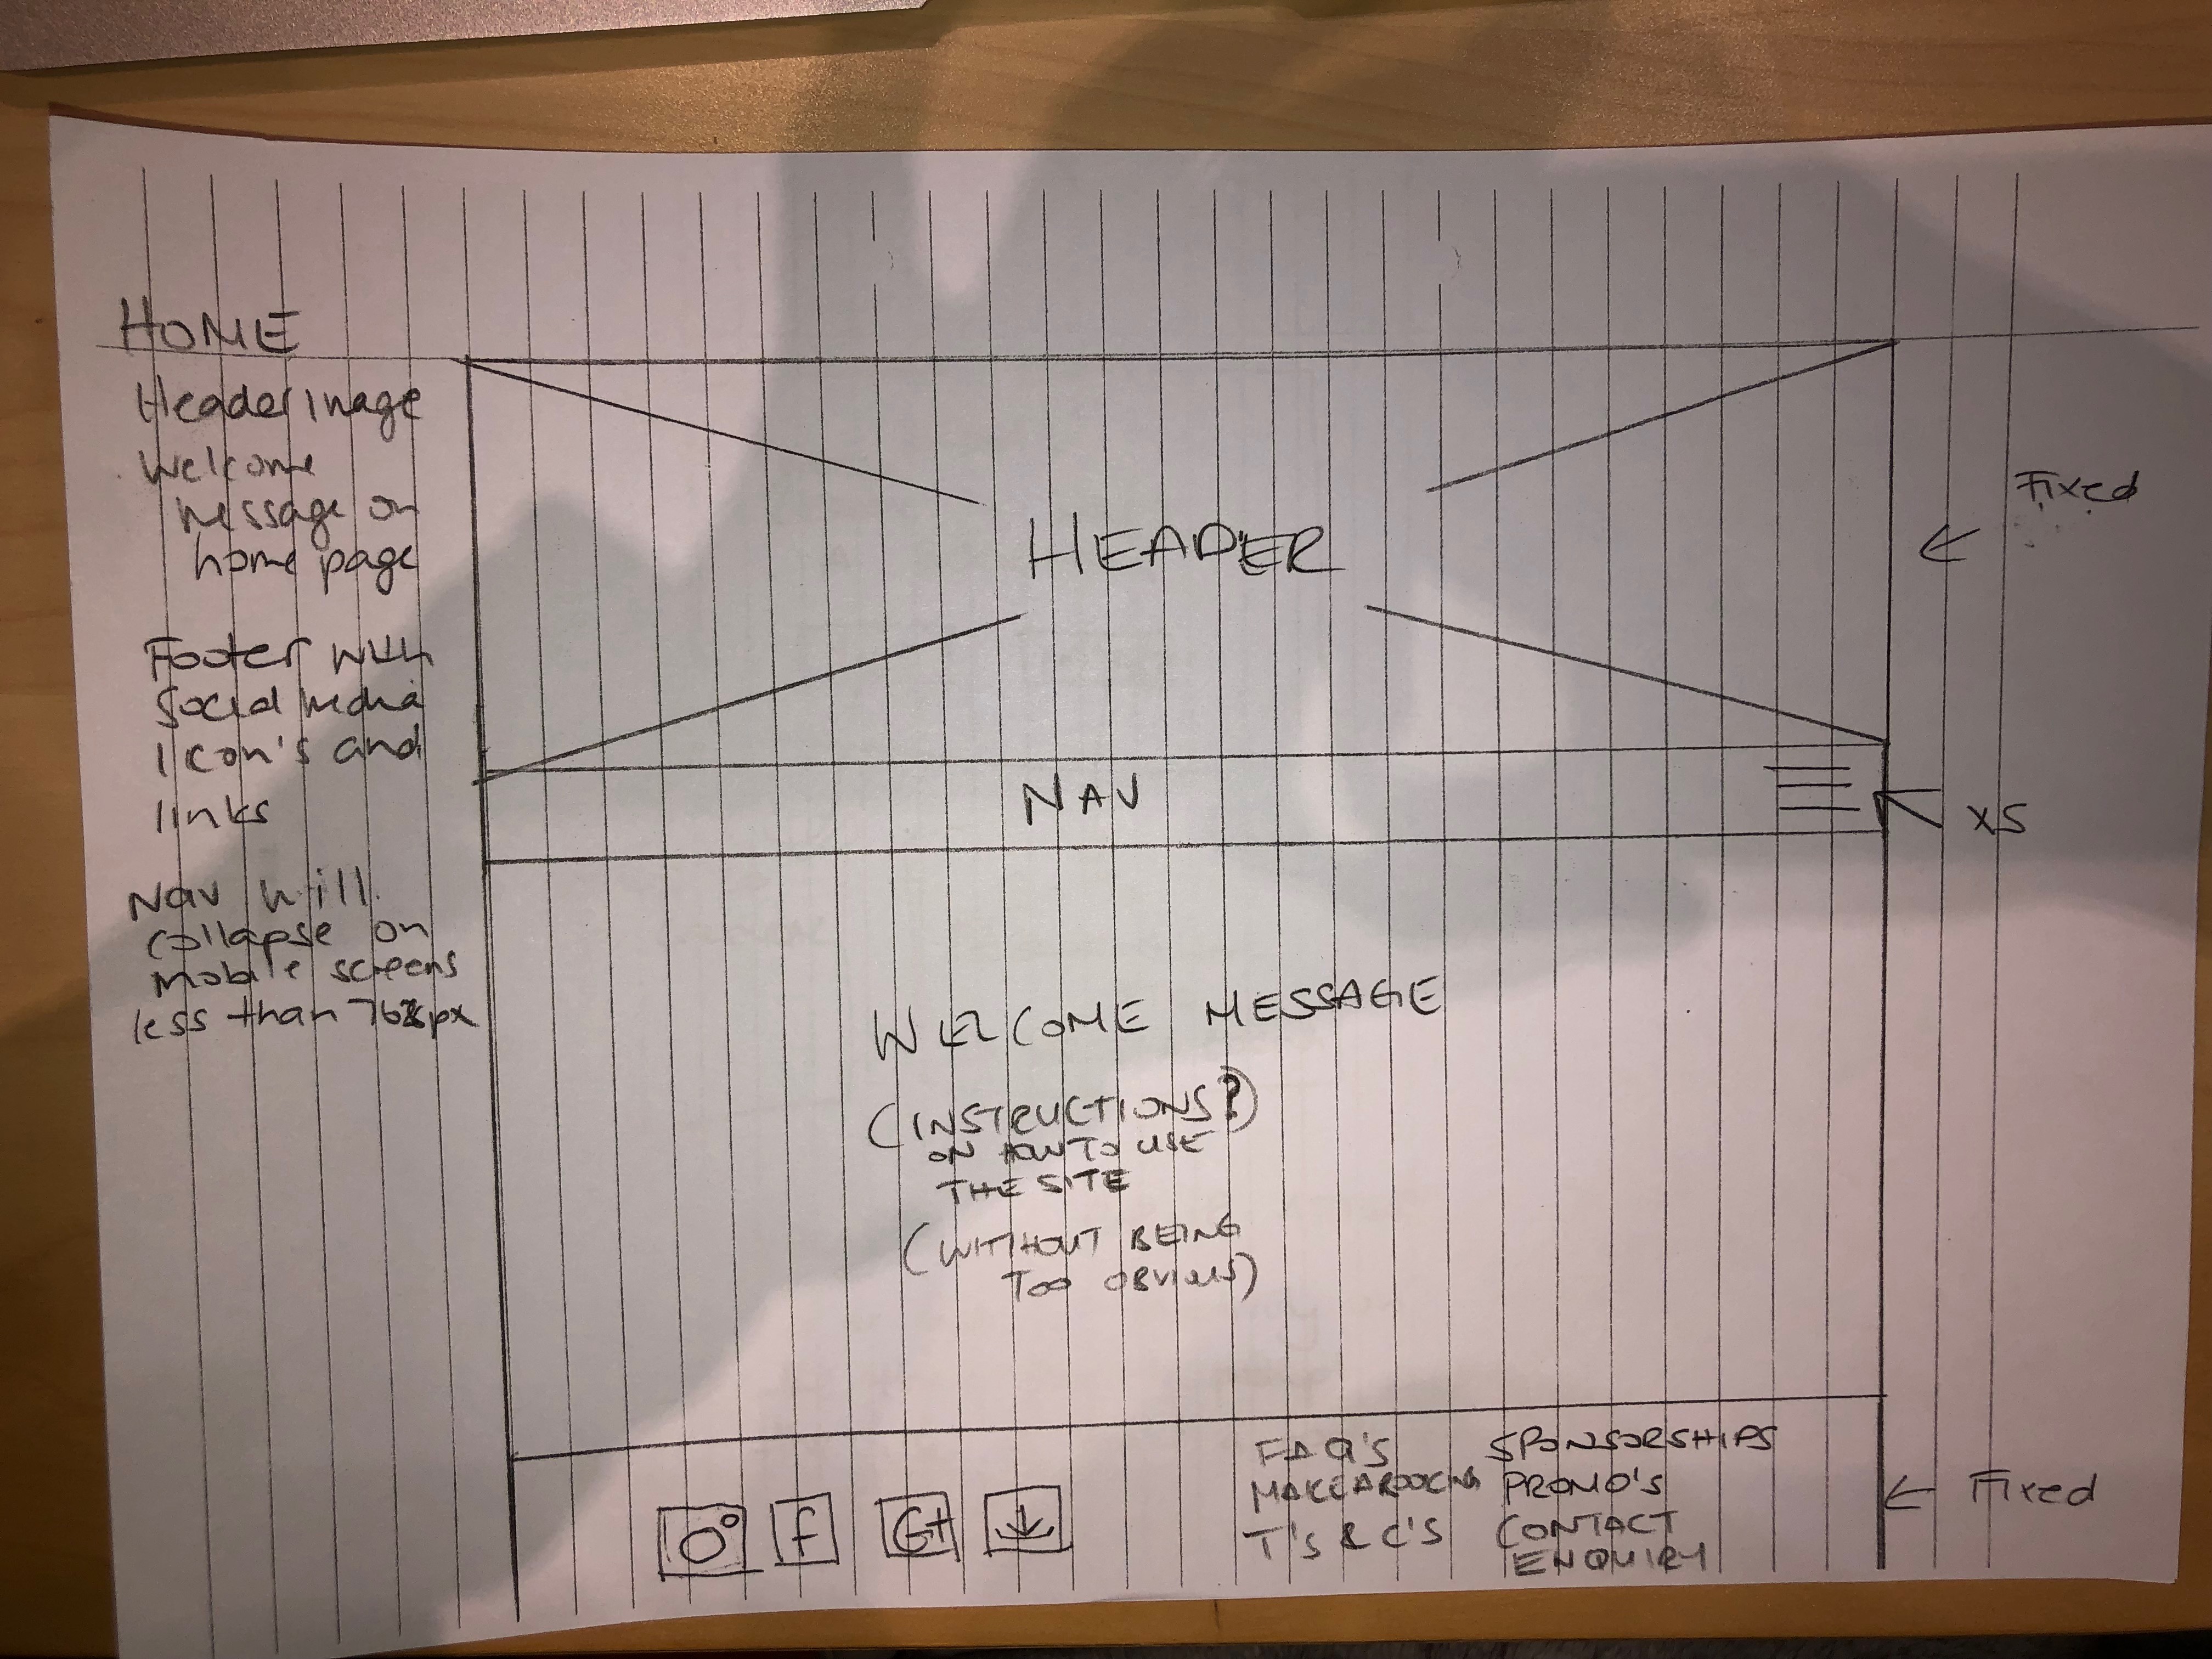 HOME
Header image
Welcome
message on
home page
Footer with
Social media
icon's and
links
Nav will
collapse on
mobile screens
less than 768px
HEADER
Fixed
NAV
XS
WELCOME MESSAGE
(INSTRUCTIONS?)
ON HOW TO USE
THE SITE
(WITHOUT BEING
TOO OBVIOUS)
f
G+
FAQ'S
MAKE A BOOKING
T'S & C'S
SPONSORSHIPS
PROMO'S
CONTACT
ENQUIRY
Fixed